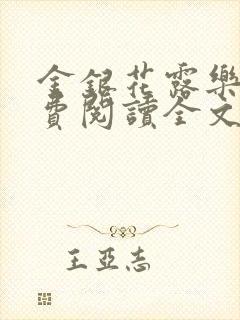 金銀花露樂
費閱讀全文
王亞志